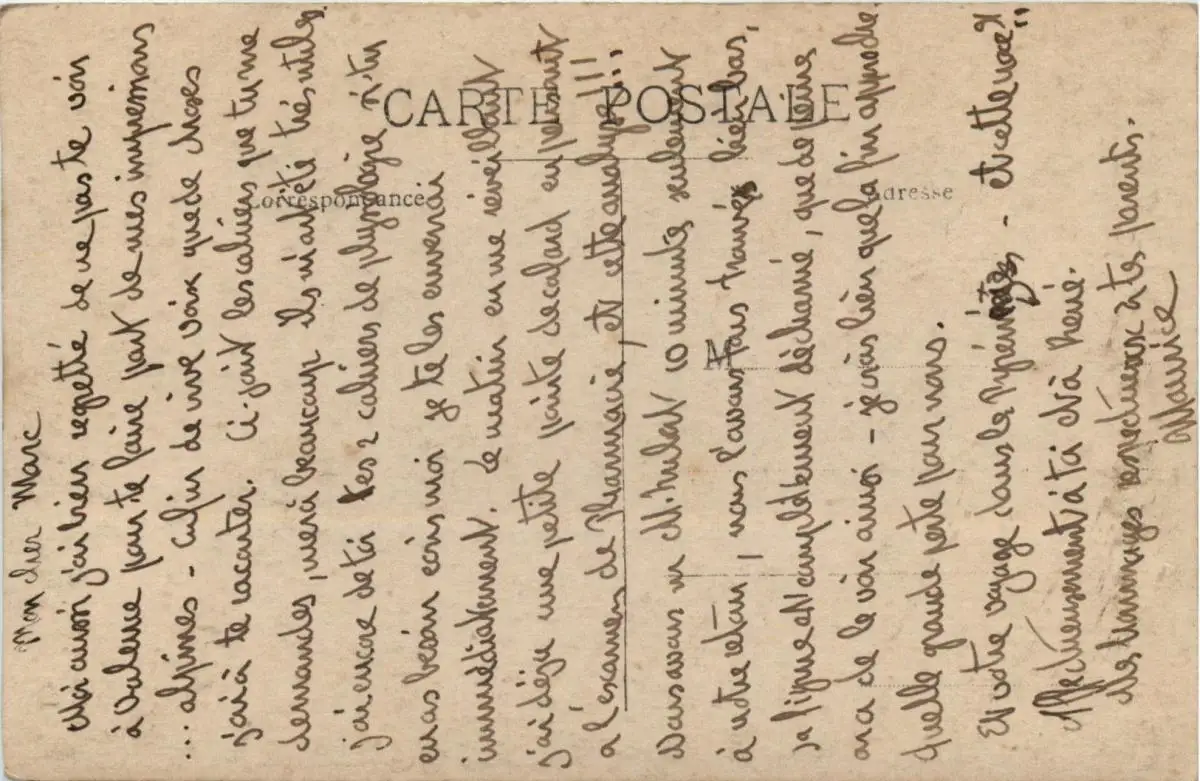 CARTE POSTALE
Correspondance
Adresse
M
Mon cher Marc
Moi aussi j'ai bien regretté de ne pas te voir
à Valence pour te faire part de mes impressions
... alpines - enfin de vive voix que de choses
j'aurai à te raconter. Ci-joint les cahiers que tu me
demandes, merci beaucoup Ils m'ont été très utiles.
j'ai encore de toi tes 2 cahiers de physiologie si tu
en as besoin écris moi je te les enverrai
immédiatement. Ce matin en me réveillant
j'ai déjà une petite pointe de cafard en pensant
à l'examen de Pharmacie, et cette analyse!!!
Nous avons vu M. 10 minutes seulement
à notre retour, nous l'avons tous trouvé bien bas,
sa figure est complètement décharné, que de peine
on a de le voir ainsi - je crois bien que la fin approche.
quelle grande perte pour nous.
Et votre voyage dans les Pyrénées, - et cette noce?!!
Affectueusement à toi et à René.
Mes hommages respectueux à tes parents.
Maurice